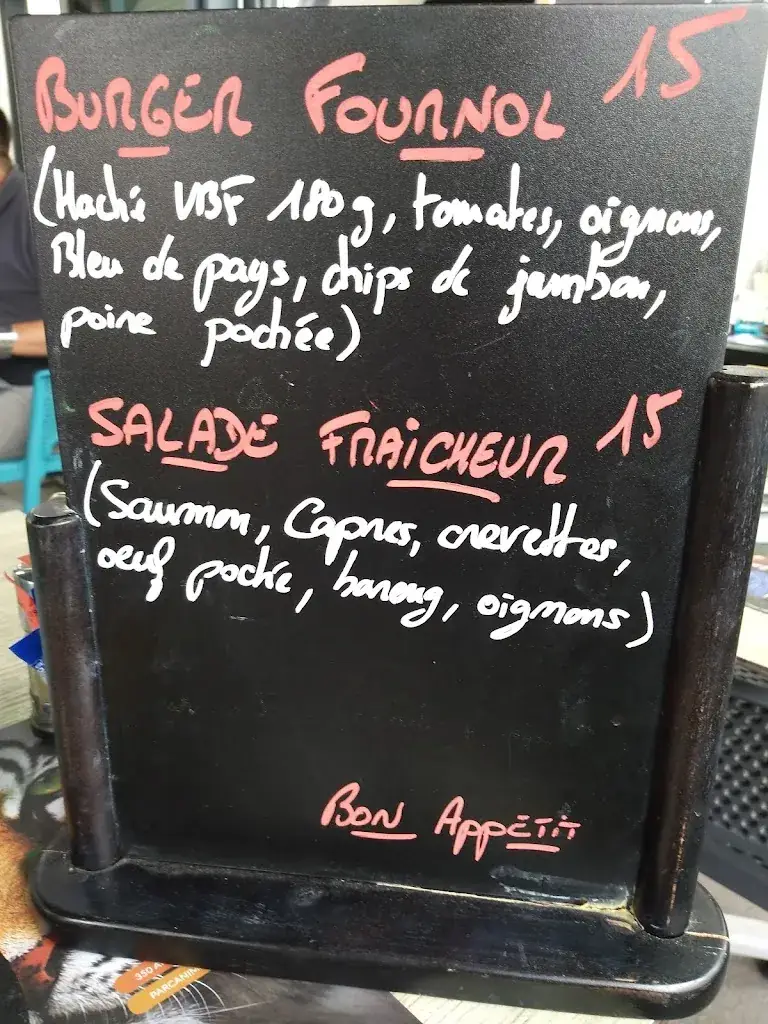 BURGER FOURNOL 15
(Haché VBF 180g, tomates, oignons,
Bleu de pays, chips de jambon,
poire pochée)
SALADE FRAICHEUR 15
(Saumon, Capres, crevettes,
oeuf poché, hareng, oignons)
BON APPETIT
350 A
PARCANIM